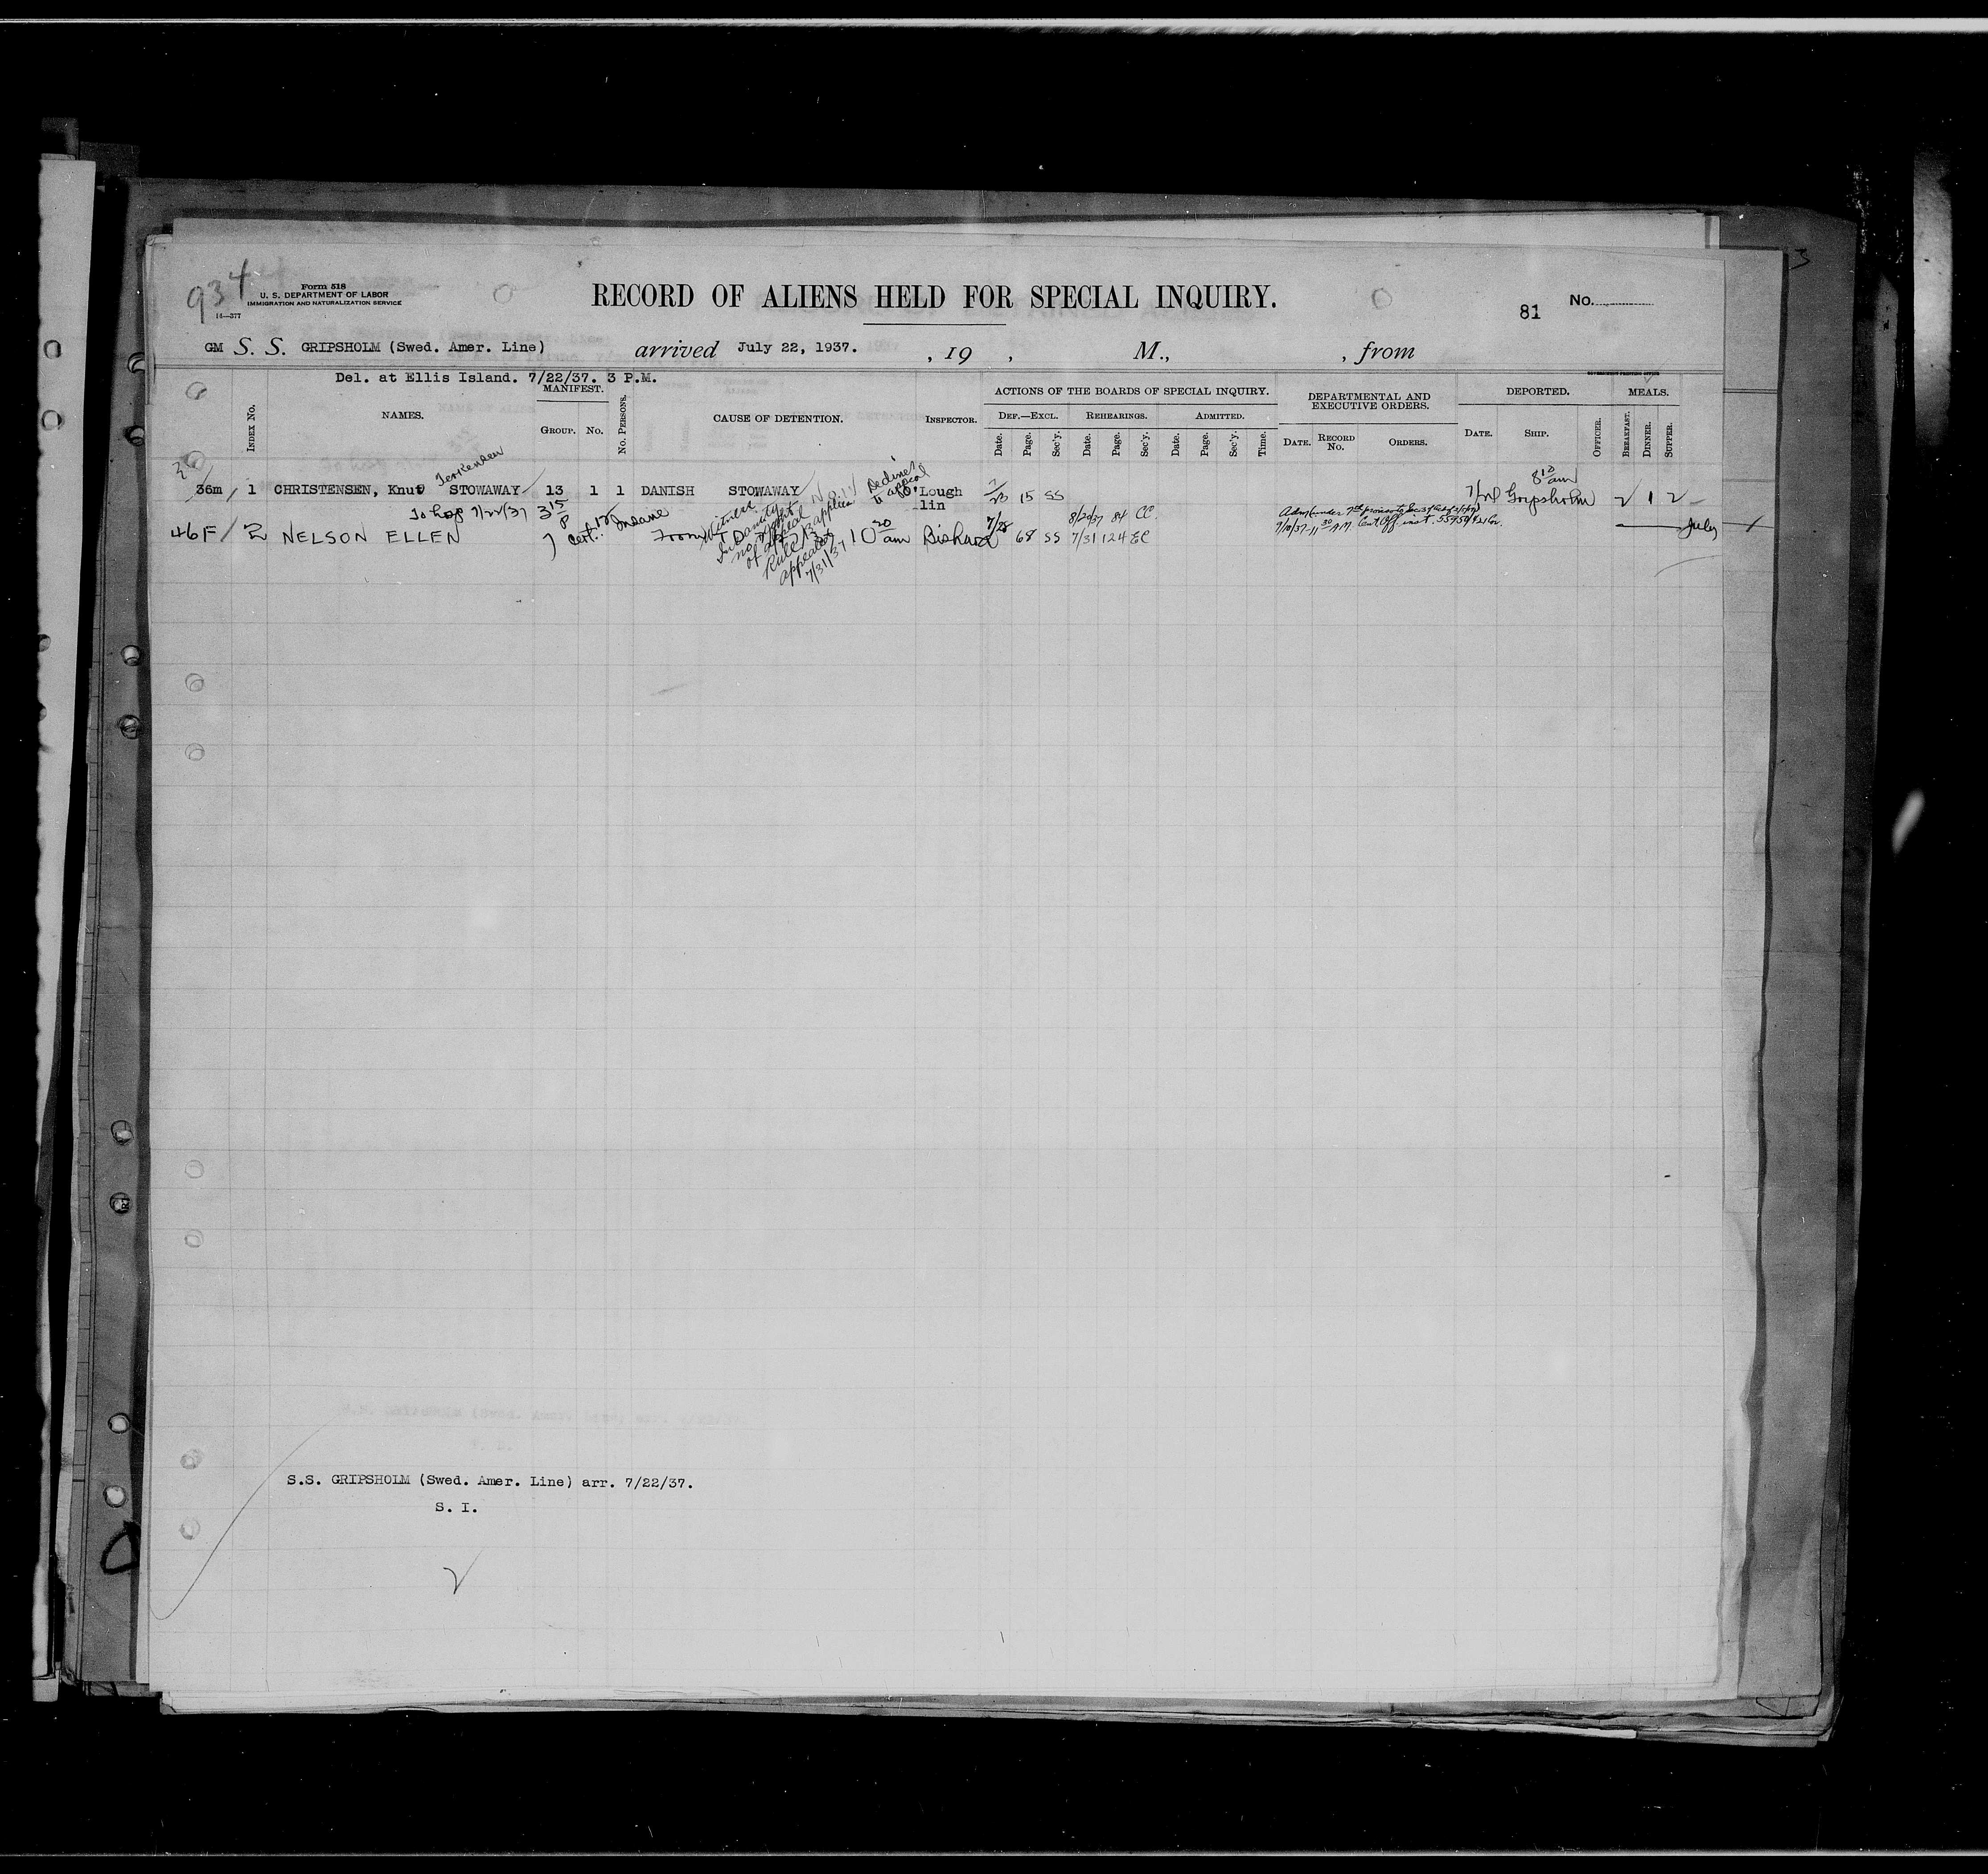 934
Form 518
U. S. DEPARTMENT OF LABOR
IMMIGRATION AND NATURALIZATION SERVICE
14—377
RECORD OF ALIENS HELD FOR SPECIAL INQUIRY.
81 No.
3
GM S. S. GRIPSHOLM (Swed. Amer. Line) arrived July 22, 1937. , 19 , M., , from
Del. at Ellis Island. 7/22/37. 3 P.M.
GOVERNMENT PRINTING OFFICE
INDEX NO. NAMES. MANIFEST. GROUP. NO. NO. PERSONS. CAUSE OF DETENTION. INSPECTOR. ACTIONS OF THE BOARDS OF SPECIAL INQUIRY. DEPARTMENTAL AND EXECUTIVE ORDERS. DEPORTED. MEALS.
DEF.—EXCL. REHEARINGS. ADMITTED.
Date. Page. Sec'y. Date. Page. Sec'y. Date. Page. Sec'y. Time. DATE. RECORD NO. ORDERS. DATE. SHIP. OFFICER. BREAKFAST. DINNER. SUPPER.
36m 1 CHRISTENSEN, Knut STOWAWAY 13 1 1 DANISH STOWAWAY Declined to appeal O'Lough
lin 15 SS 8 10 am Gripsholm 2 1 2
To hosp 7/22/37 3 15 P
46F 2 NELSON ELLEN Cert. Insane
From
Insanity
no right
of appeal
Rule 13 applies
appealed
7/31/37
10 30 am 7/28 68 SS 7/31 124 EC
8/20/37 84 CC.
Adm. under 7th proviso to Sec 3
11 30 A.M.
July
S.S. GRIPSHOLM (Swed. Amer. Line) arr. 7/22/37.
S. I.